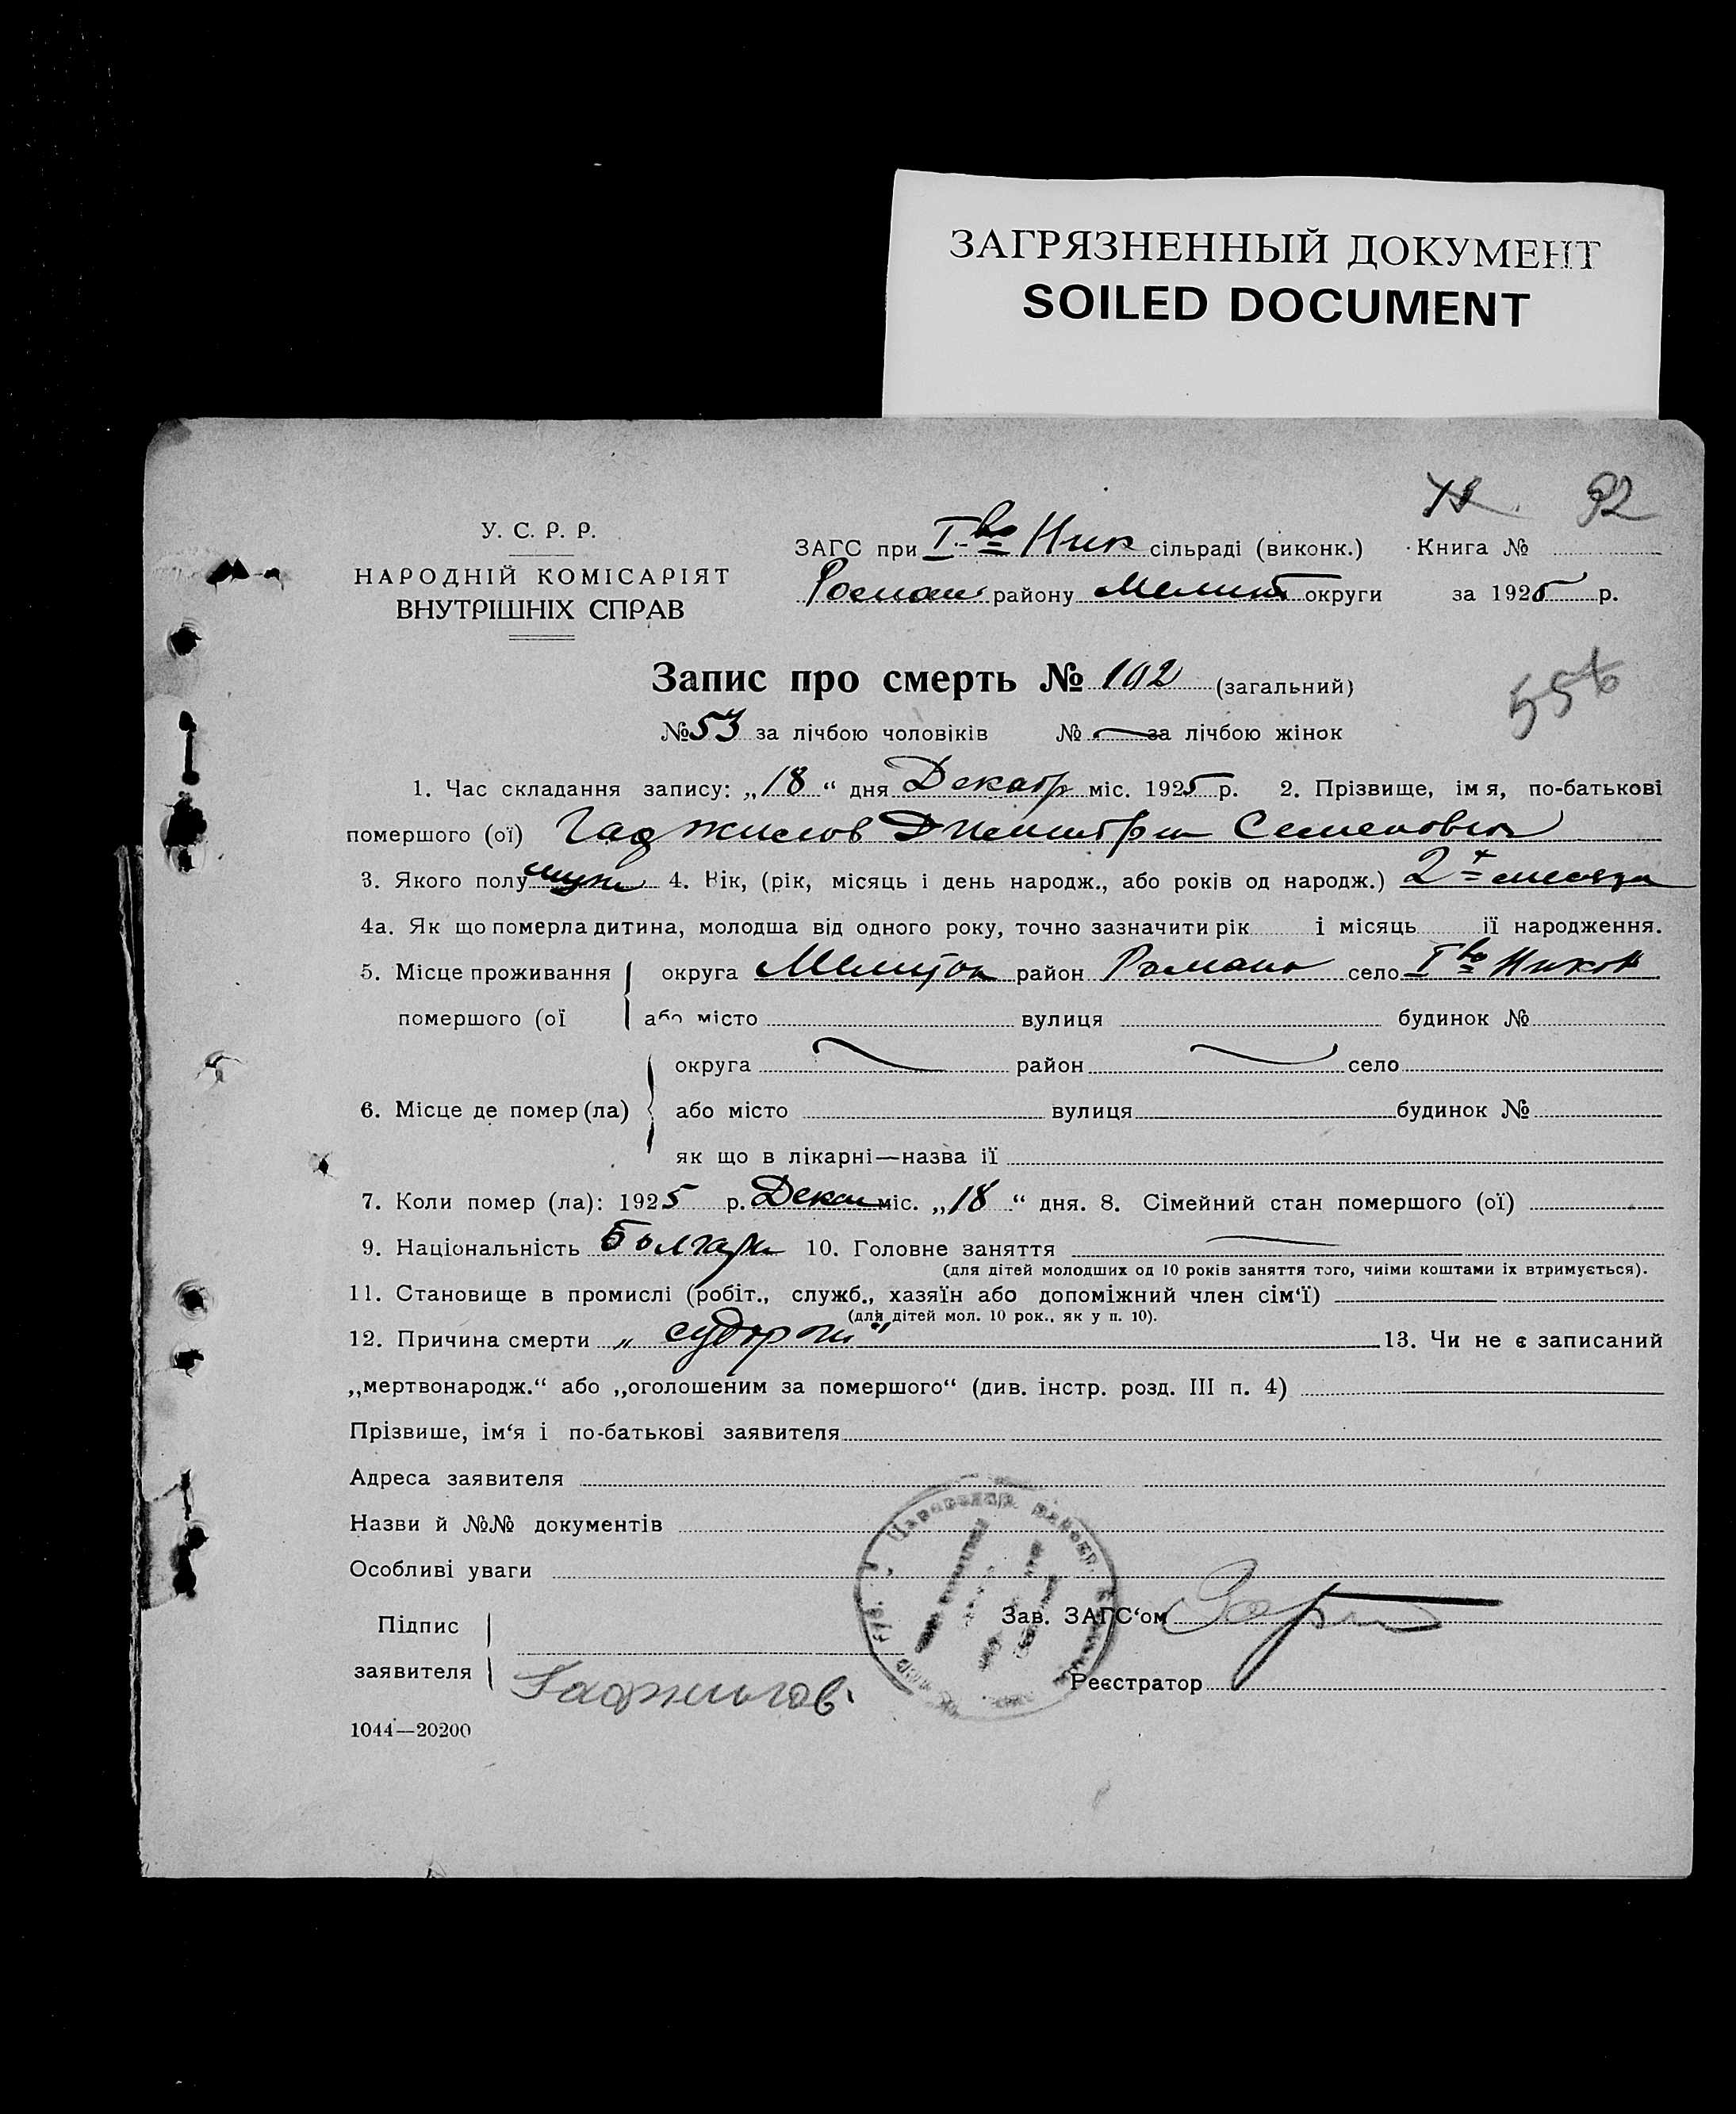 ЗАГРЯЗНЕННЫЙ ДОКУМЕНТ
SOILED DOCUMENT
92
У. С. Р. Р.
НАРОДНІЙ КОМІСАРІЯТ
ВНУТРІШНІХ СПРАВ
ЗАГС при І-во Ник сільраді (виконк.) Книга №
Роман району Мелит округи за 1925 р.
Запис про смерть № 102 (загальний)
556
№ 53 за лічбою чоловіків № — за лічбою жінок
1. Час складання запису: „18“ дня Декабр міс. 1925 р. 2. Прізвище, імя, по-батькові
помершого (ої) Гаджилов Дмитри Семенович
3. Якого полу муж 4. Вік, (рік, місяць і день народж., або років од народж.) 2х месяца
4а. Як що померла дитина, молодша від одного року, точно зазначити рік і місяць її народження.
5. Місце проживання округа Мелитоп район Романо село І-во Никол
помершого (ої або місто вулиця будинок №
округа район село
6. Місце де помер (ла) або місто вулиця будинок №
як що в лікарні—назва ії
7. Коли помер (ла): 1925 р. Декаб міс. „18“ дня. 8. Сімейний стан помершого (ої)
9. Національність Болгари 10. Головне заняття —
(для дітей молодших од 10 років заняття того, чиїми коштами їх втримується).
11. Становище в промислі (робіт., служб., хазяїн або допоміжний член сім‘ї)
(для дітей мол. 10 рок., як у п. 10).
12. Причина смерти „судороги“ 13. Чи не є записаний
„мертвонародж.“ або „оголошеним за помершого“ (див. інстр. розд. III п. 4)
Прізвише, ім‘я і по-батькові заявителя
Адреса заявителя
Назви й №№ документів
Особливі уваги
Підпис
заявителя Гаджилов
Зав. ЗАГС‘ом
Реєстратор
1044—20200